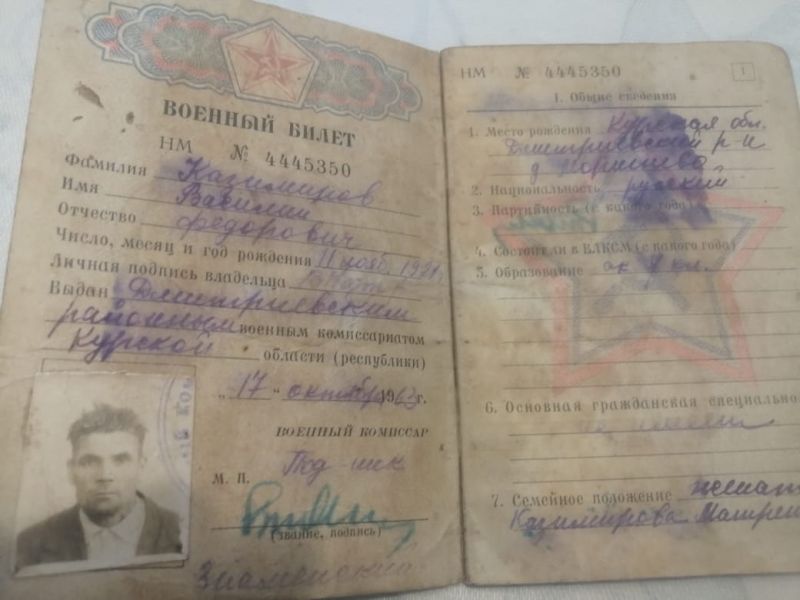 ВОЕННЫЙ БИЛЕТ
НМ № 4445350
Фамилия Казимиров
Имя Василий
Отчество Федорович
Число, месяц и год рождения 11 нояб. 1921
Личная подпись владельца
Выдан Дмитриевским
районным военным комиссариатом
Курской области (республики)
„17" октября 1963 г.
ВОЕННЫЙ КОМИССАР
Под-ник
М. П.
(звание, подпись)
Знаменский
НМ № 4445350
1
I. Общие сведения
1. Место рождения Курская обл.
Дмитриевский р-н
д.
2. Национальность русский
3. Партийность (с какого года)
4. Состоял ли в ВЛКСМ (с какого года)
5. Образование ок 4 кл.
6. Основная гражданская специально
не имеет
7. Семейное положение женат
Казимирова Матрен